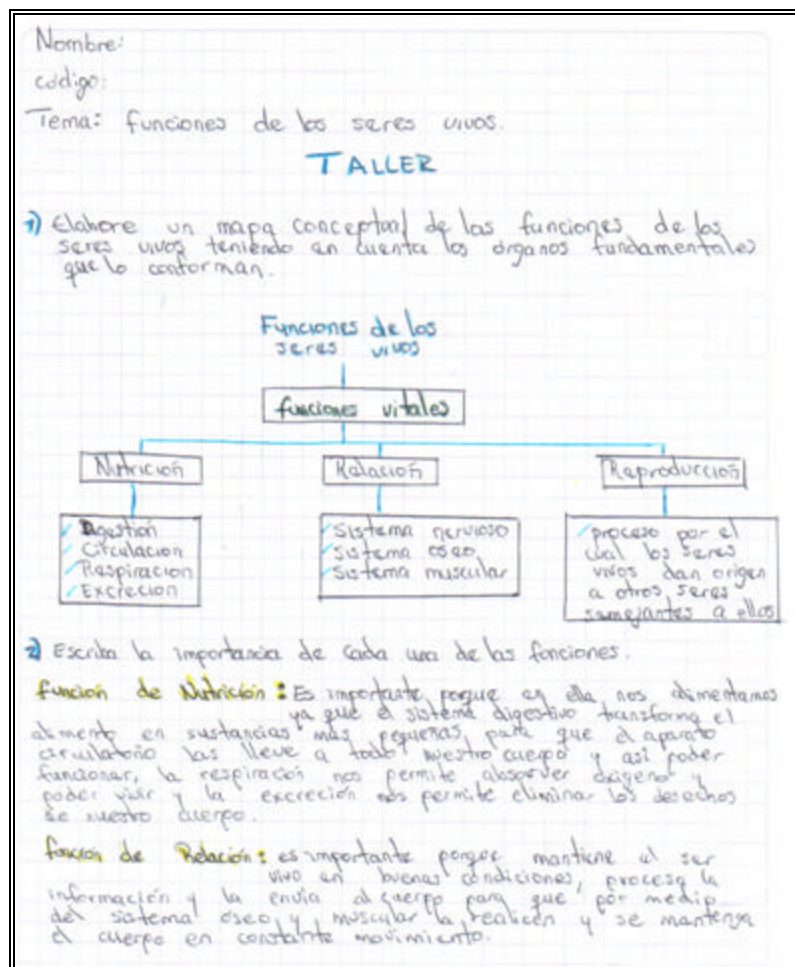 Nombre:
código:
Tema: funciones de los seres vivos.
TALLER
1) Elabore un mapa conceptual de las funciones de los
seres vivos teniendo en cuenta los órganos fundamentales
que lo conforman.
Funciones de los
seres vivos
funciones vitales
Nutrición
Relación
Reproducción
Digestión
Circulación
Respiración
Excreción
Sistema nervioso
Sistema oseo
Sistema muscular
proceso por el
cual los seres
vivos dan origen
a otros seres
semejantes a ellos
2) Escriba la importancia de cada una de las funciones.
función de Nutrición: Es importante porque en ella nos alimentamos
ya que el sistema digestivo transforma el
alimento en sustancias más pequeñas, para que el aparato
circulatorio las lleve a todo nuestro cuerpo y así poder
funcionar, la respiración nos permite absorver oxígeno y
poder vivir y la excreción nos permite eliminar los desechos
de nuestro cuerpo.
función de Relación: es importante porque mantiene al ser
vivo en buenas condiciones, procesa la
información y la envía al cuerpo para que por medio
del sistema óseo y muscular la realicen y se mantenga
el cuerpo en constante movimiento.